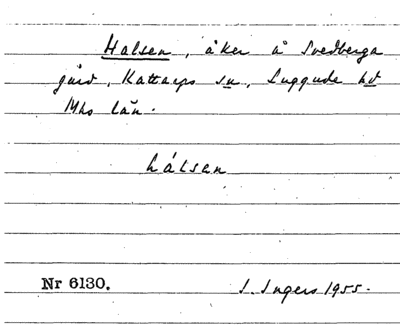 Halsen, åker å Svedberga
gård, Kattarps sn, Luggude hd
Mhs län.
hálsen
Nr 6130.
I. Ingers 1955.